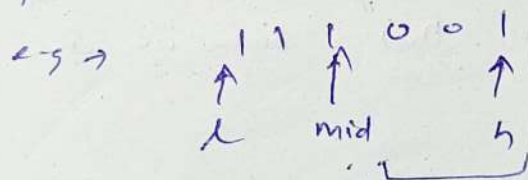 e-g → 1 1 1 0 0 1
l mid h